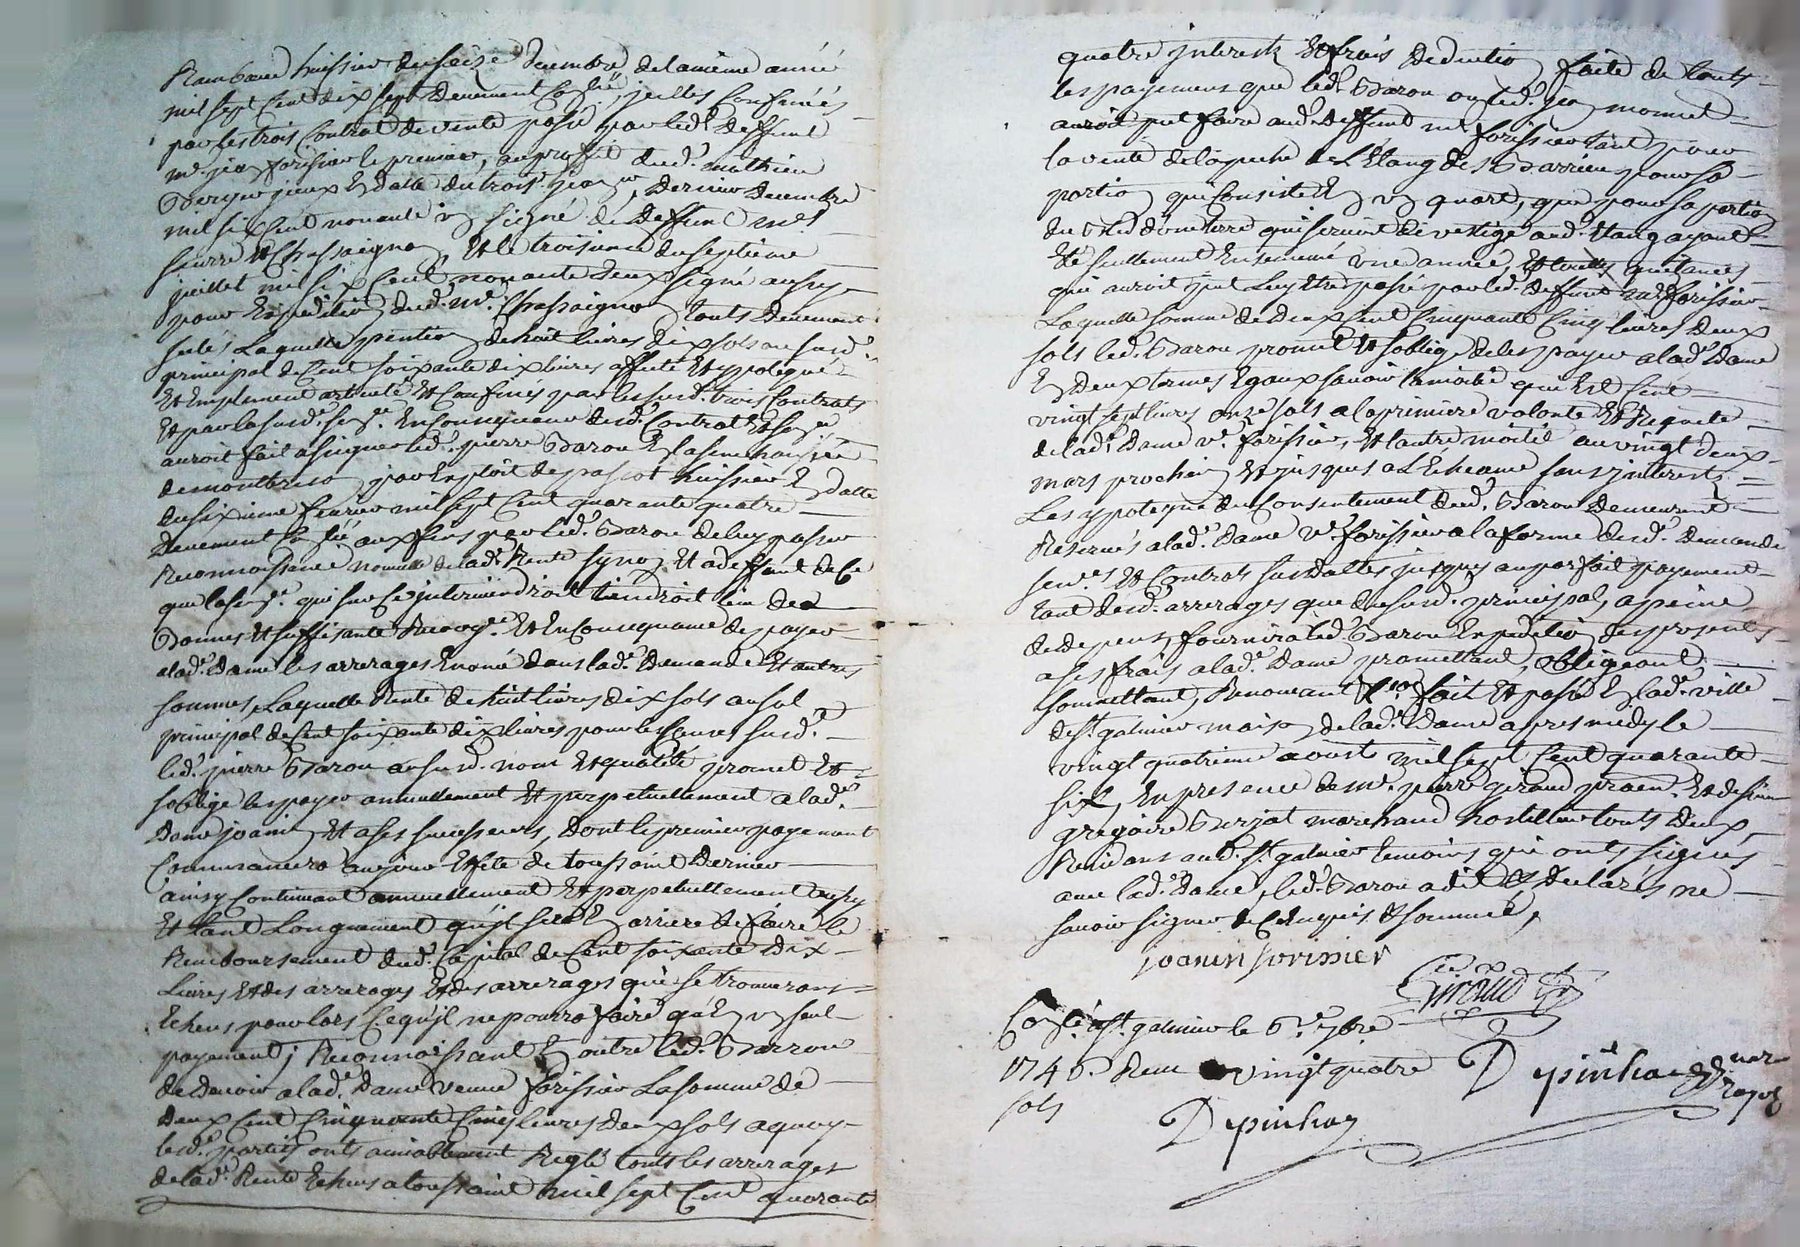 Rambaud huissier du seize decembre de la même année
mil sept cent dix sept duement conllé, jcelles confinées
par les trois contrat de vente passé par led.t deffunt
m.e jean forissier le premier, au proffit dud.t mathieu
Berger jeux En datte du trois.e jeanv.er, dernier decembre
mil six cent nonante un signé de deffunt m.es
pierre et Chassaignon, Et le troisieme du septieme
juillet mil six cent nonante deux signé aussy
pour Expedition dud. m.e Chassaignon, touts deuement
scelés Laquelle pention de huit livres dix sols au susd.
principal de Cent soixante dix livres affecté Et ypotequé
Et Emplement articulé Et Confinés par les susd. trois Contrats
Et par la susd. sen.e En Consequence dud. Contrat Et sen.e
auroit fait assigner led. pierre Barou En la senechaussée
de montbrison, par Exploit de pascot huissier En datte
du sixieme fevrier mil sept Cent quarante quatre
duement conllé aux fins par led. Barou de luy passer
Reconnoissance nouvelle de lad. Rente synon, Et a deffaut de Ce
que la sen.e qui sur Ce jnterviendroit tiendroit lieu de
Bonne Et suffisante Recog.ce Et En Consequance de payer
a lad.e Dame les arrerages Enoncé dans lad.e Demande Et autres
sommes, Laquelle Rente de huit livres dix sols au sol
principal de Cent soixante dix livres pour les Causes susd.es
led. pierre Barou au susd. nom Et qualité promet Et
soblige les payer annuellement Et perpetuellement a lad.e
Dame joanin, Et a ses successeurs, Dont le premier payement
Commancera au jour Et fete de toussaint Dernier
ainsy Continuant annuellement Et perpetuellement aussy
Et tant Longuement qu'jl sera En arriere de faire le
Remboursement dud. Capital de Cent soixante dix
Livres Et des arrerages Et des arrerages qui se trouverons
Echeus pour lors Ce qu'jl ne pourra faire qu'En un seul
payement; Reconnoissant En outre led. Barrou
de devoir a lad.e Dame veuve forissier La somme de
Deux Cent Cinquante Cinq livres deux sols a quoy
lesd. parties onts amiablement Reglé touts les arrerages
de lad.e Rente Echeus a toussaint mil sept Cent quarante
quatre jnterest Et frais Deduction faite de touts
les payemens que led. Barou ou led. jean monnet
auroit put faire aud. deffunt m.e forissier tant pour
la vente de la peche de L'Etang des Barrieu pour sa
portion qui Consiste En un quart, que pour sa portion
du bled d'une terre qui seroit de vestige aud. Etang ayant
Eté seullement Ensemencé une année, Et touttes quitances
qui auroit put luy Etre passé par led. deffunt m.e forissier
Laquelle somme de deux Cent Cinquante Cinq livres deux
sols led. Barou promet Et soblige de les payer a lad.e Dame
En deux termes Egaux savoir la moitié qui Est Cent
vingt sept livres onze sols a la premiere volonté Et Requete
de lad.e Dame v.e forissier, Et l'autre moitié au vingt deux
mars prochain Et jusques a L'Echeance sans jnterests
Les ypoteque du Consentement dud. Barou Demeurent
Reservés a lad.e Dame v.e forissier a la forme desd. demande
sen.es Et Contrats susdattes jusques au parfait payement
tant desd. arrerages que du susd. principal, a peine
de depens, fournira led. Barou Expedition des presentes
a ses frais a lad.e Dame promettant, obligeant
soumettant, Renonceant &.a fait Et passé En lad.e ville
de S.t galmier maison de lad.e Dame apres midy le
vingt quatrieme aoust mil sept Cent quarante
six, En presence de m.e pierre giraud praen. Et de sieur
gregoire Burjat marchand hostellier touts deux
Residans aud. S.t galmier temoins qui onts signés
avec lad.e Dame, led. Barou a dit Et declarés ne
savoir signer de Ce Enquis Et sommé,
joanin forissier
Giraud
Con.lé a S.t galmier le 6.e 7bre
1746. Reçu vingt quatre
sols
Depinhac no.re Royal
Depinhac